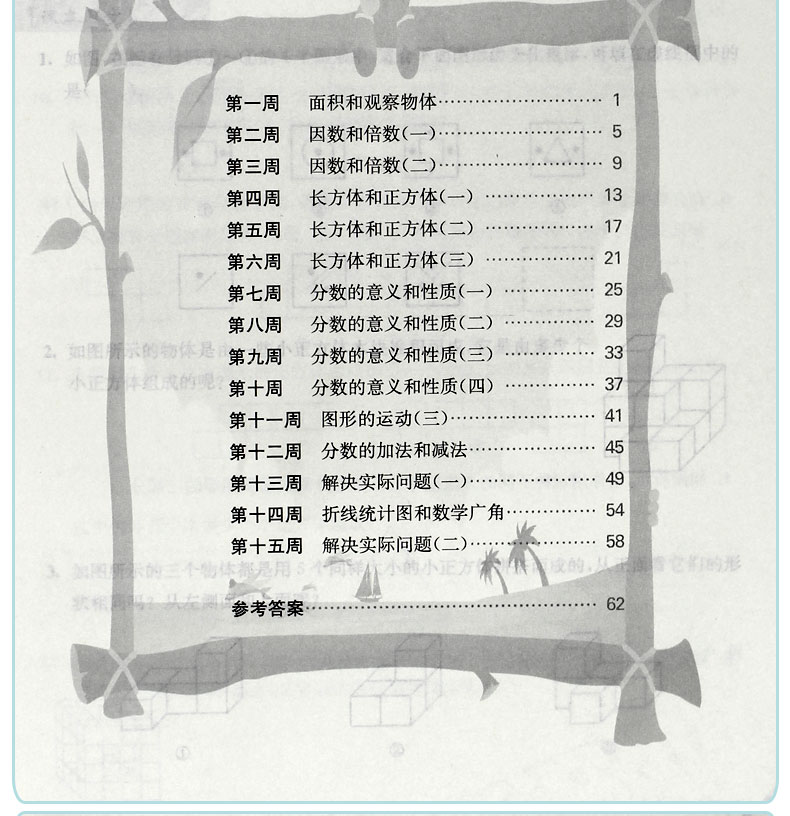 第一周 面积和观察物体………………………… 1
第二周 因数和倍数(一)………………………… 5
第三周 因数和倍数(二)………………………… 9
第四周 长方体和正方体(一)……………… 13
第五周 长方体和正方体(二)……………… 17
第六周 长方体和正方体(三)……………… 21
第七周 分数的意义和性质(一)…………… 25
第八周 分数的意义和性质(二)…………… 29
第九周 分数的意义和性质(三)…………… 33
第十周 分数的意义和性质(四)…………… 37
第十一周 图形的运动(三)…………………… 41
第十二周 分数的加法和减法………………… 45
第十三周 解决实际问题(一)………………… 49
第十四周 折线统计图和数学广角…………… 54
第十五周 解决实际问题(二)………………… 58
参考答案………………………………………… 62